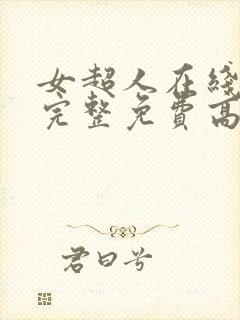 女超人在綫
完整免費高
君曰兮